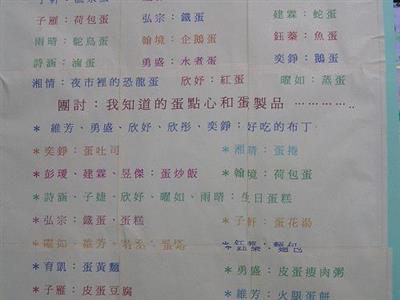 子雁：荷包蛋 弘宗：鐵蛋 建霖：蛇蛋
雨晴：鴕鳥蛋 翰境：企鵝蛋 鈺蓁：魚蛋
詩涵：滷蛋 勇盛：水煮蛋 奕錚：鵝蛋
湘情：夜市裡的恐龍蛋 欣妤：紅蛋 曜如：蒸蛋
團討：我知道的蛋點心和蛋製品 …………..
* 維芳、勇盛、欣妤、欣彤、奕錚：好吃的布丁
* 奕錚：蛋吐司 * 湘晴：蛋捲
* 彭瑗、建霖、昱傑：蛋炒飯 * 翰境：荷包蛋
* 詩涵、子婕、欣妤、曜如、雨晴：生日蛋糕
* 弘宗：鐵蛋、蛋糕 * 子軒：蛋花湯
* 曜如、維芳、 蛋塔 * 鈺蓁：麵包
* 育凱：蛋黃麵 * 勇盛：皮蛋瘦肉粥
* 子雁：皮蛋豆腐 * 維芳：火腿蛋餅